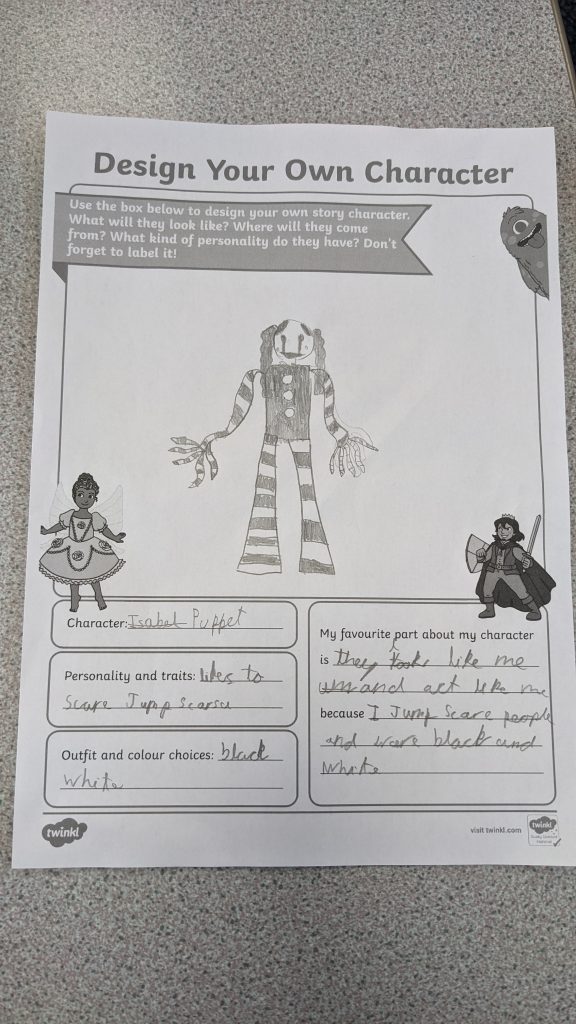 Design Your Own Character
Use the box below to design your own story character.
What will they look like? Where will they come
from? What kind of personality do they have? Don't
forget to label it!
Character: Isabel Puppet
Personality and traits: likes to
scare Jump
Outfit and colour choices: black
white
My favourite part about my character
is they looks like me
and act like me
because I Jump scare people
and were black and
white
twinkl
visit twinkl.com
twinkl